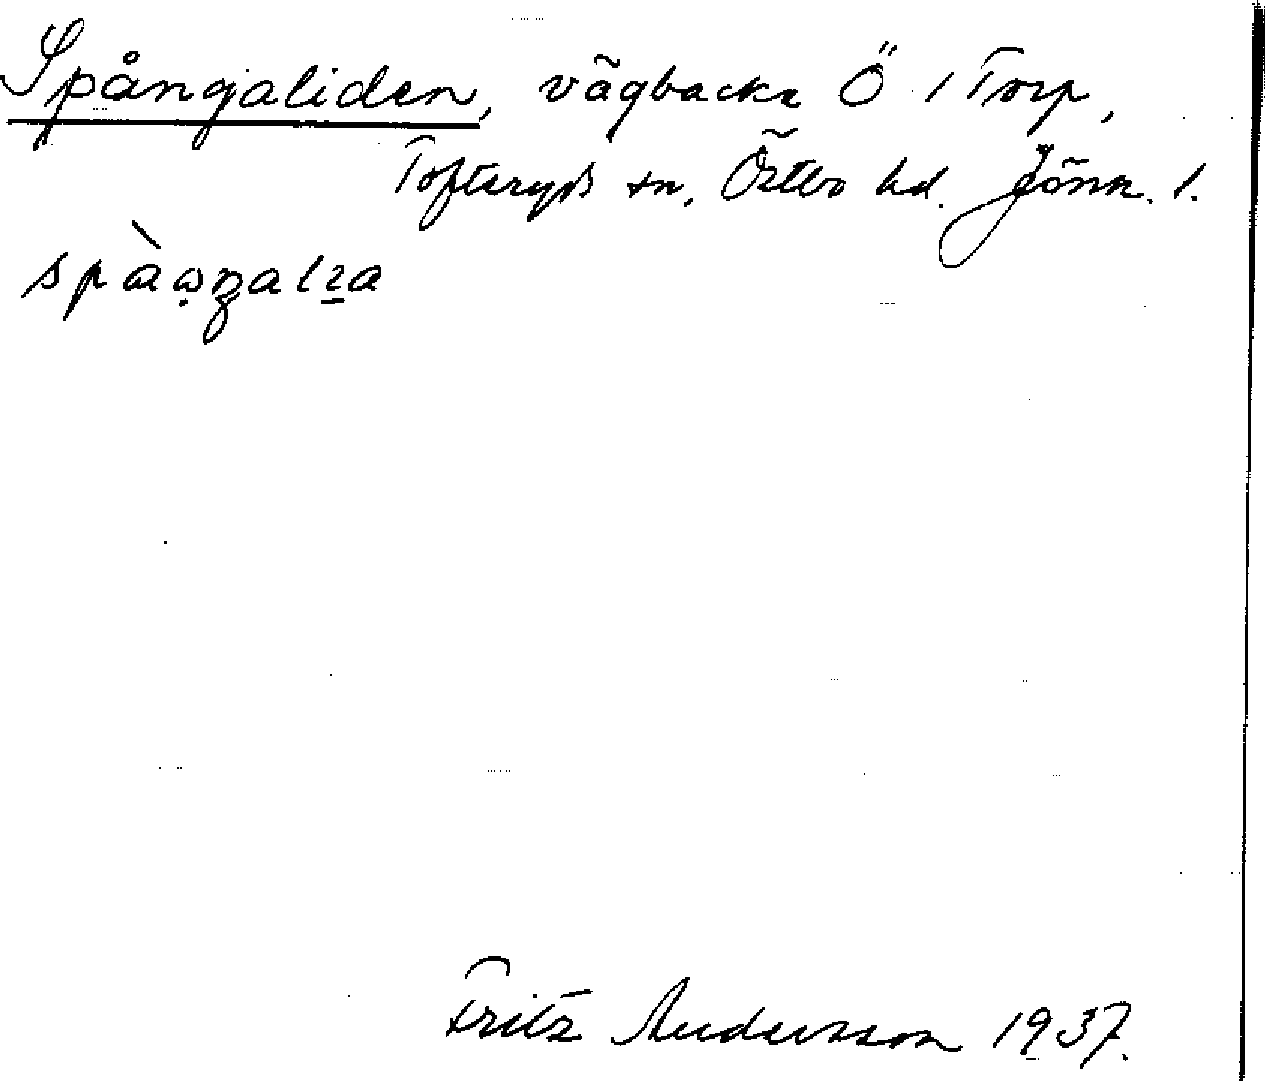 Spångaliden, vägbacke Ö i Torp,
Tofteryds sn, Östbo hd. Jönk. l.
Fritz Andersson 1937.